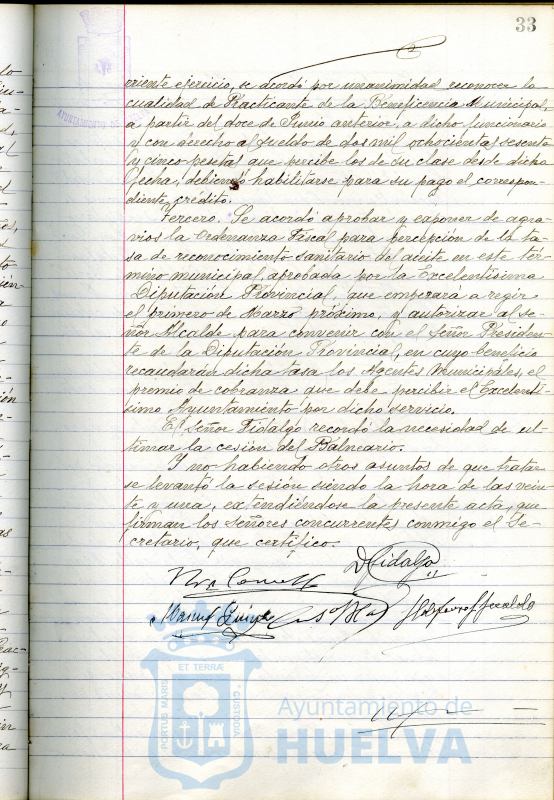 33
rriente ejercicio, se acordó por unanimidad reconocer la
cualidad de Practicante de la Beneficencia Municipal,
a partir del doce de Junio anterior, a dicho funcionario
y con derecho al sueldo de dos mil ochocientas sesenta
y cinco pesetas que percibe los de su clase desde dicha
fecha, debiendo habilitarse para su pago el correspon-
diente crédito.
Tercero. Se acordó aprobar y exponer de agra-
vios la Ordenanza Fiscal para percepción de la ta-
sa de reconocimiento sanitario del aceite en este tér-
mino municipal, aprobada por la Excelentísima
Diputación Provincial, que empezará a regir
el primero de Marzo próximo, y autorizar al se-
ñor Alcalde para convenir con el Señor Presiden-
te de la Diputación Provincial, en cuyo beneficio
recaudarán dicha tasa los Agentes Municipales, el
premio de cobranza que debe percibir el Excelentí-
simo Ayuntamiento por dicho servicio.
El Señor Fidalgo recordó la necesidad de ul-
timar la cesión del Balneario.
Y no habiendo otros asuntos de que tratar
se levantó la sesión siendo la hora de las vein-
te y una, extendiéndose la presente acta, que
firman los señores concurrentes conmigo el Se-
cretario, que certifico.
D Fidalgo
PORTUS MARIS
ET TERRÆ
CUSTODIA
Ayuntamiento de
HUELVA